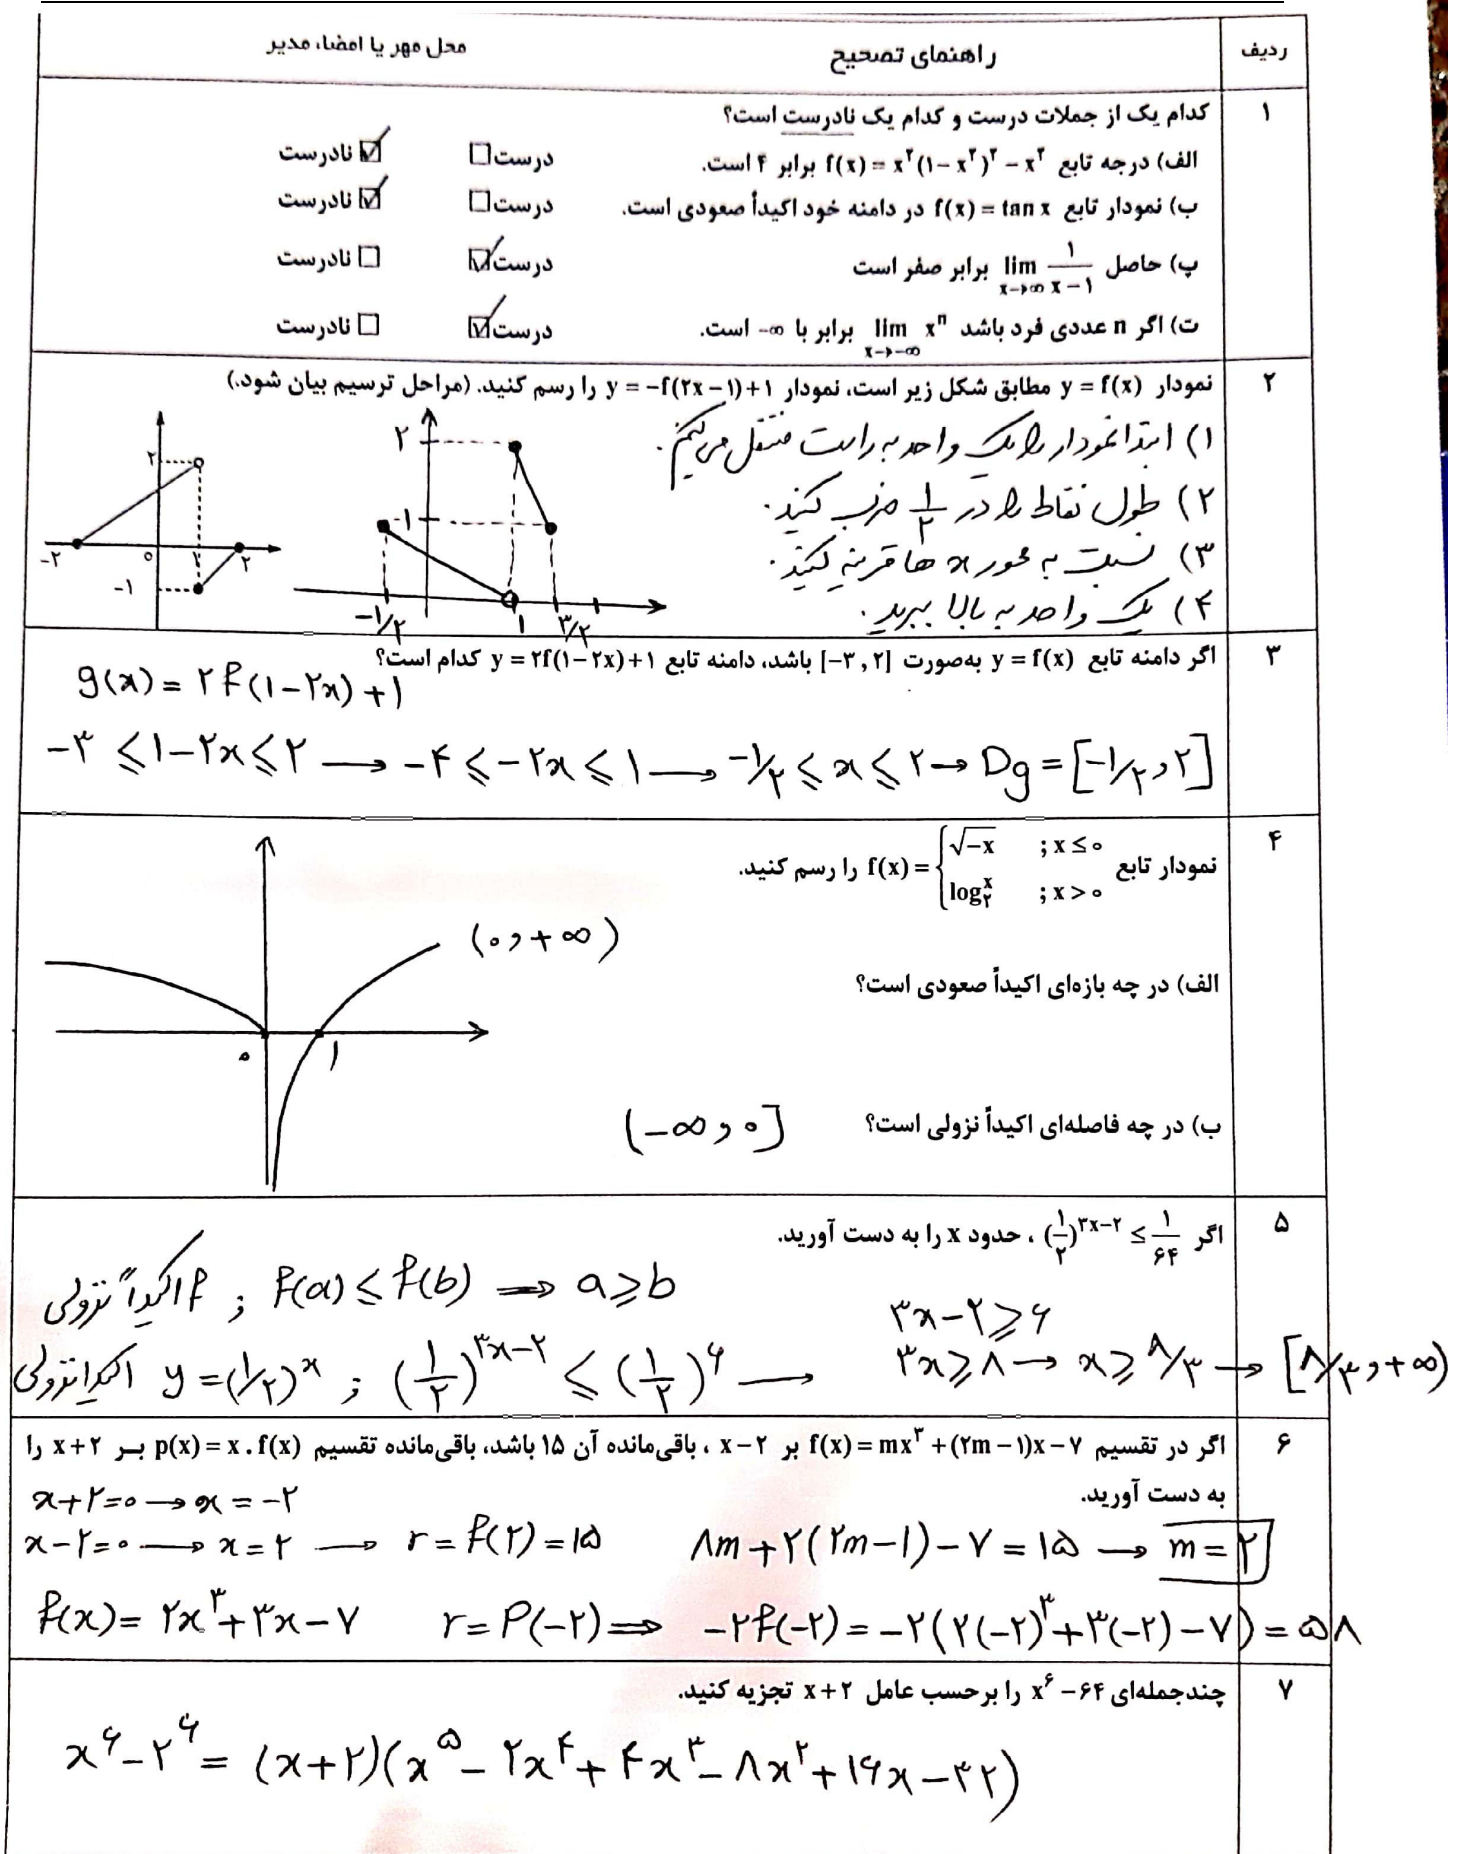 ردیف
راهنمای تصحیح
محل مهر یا امضاء مدیر
۱
کدام یک از جملات درست و کدام یک نادرست است؟
الف) درجه تابع f(x) = x²(1 − x²)² − x⁴ برابر ۴ است. درست☐ نادرست ☑
ب) نمودار تابع f(x) = tan x در دامنه خود اکیداً صعودی است. درست☐ نادرست ☑
پ) حاصل lim x→∞ ۱/(x−۱) برابر صفر است درست☑ نادرست ☐
ت) اگر n عددی فرد باشد lim x→−∞ xⁿ برابر با −∞ است. درست☑ نادرست ☐
۲
نمودار y = f(x) مطابق شکل زیر است، نمودار y = −f(۲x − ۱) + ۱ را رسم کنید. (مراحل ترسیم بیان شود.)
۱) ابتدا نمودار را یک واحد به راست منتقل می‌کنیم.
۲) طول نقاط را در ۱/۲ ضرب کنید.
۳) نسبت به محور x ها قرینه کنید.
۴) یک واحد به بالا ببرید.
۲
−۲ ۰ ۱ ۲
−۱
۲
۱
−۱/۲ ۱ ۳/۲
۳
اگر دامنه تابع y = f(x) به‌صورت [−۳, ۲] باشد، دامنه تابع y = ۲f(۱ − ۲x) + ۱ کدام است؟
g(x) = ۲f(۱−۲x) + ۱
−۳ ≤ ۱−۲x ≤ ۲ → −۴ ≤ −۲x ≤ ۱ → −۱/۲ ≤ x ≤ ۲ → Dg = [−۱/۲ , ۲]
۴
نمودار تابع f(x) = { √−x ; x ≤ ۰
log₂ˣ ; x > ۰ را رسم کنید.
(۰ , +∞)
الف) در چه بازه‌ای اکیداً صعودی است؟
۰ ۱
ب) در چه فاصله‌ای اکیداً نزولی است؟ (−∞ , ۰]
۵
اگر (۱/۲)^(۳x−۲) ≤ ۱/۶۴ ، حدود x را به دست آورید.
f اکیداً نزولی ; f(a) ≤ f(b) ⟹ a ≥ b
۳x − ۲ ≥ ۶
اکیدا نزولی y = (۱/۲)ˣ ; (۱/۲)^(۳x−۲) ≤ (۱/۲)^۶ → ۳x ≥ ۸ → x ≥ ۸/۳ → [۸/۳ , +∞)
۶
اگر در تقسیم f(x) = mx³ + (۲m − ۱)x − ۷ بر x − ۲ ، باقی‌مانده آن ۱۵ باشد، باقی‌مانده تقسیم p(x) = x . f(x) بر x + ۲ را
به دست آورید.
x + ۲ = ۰ → x = −۲
x − ۲ = ۰ → x = ۲ → r = f(۲) = ۱۵ ۸m + ۲(۲m − ۱) − ۷ = ۱۵ → m = ۲
f(x) = ۲x³ + ۳x − ۷ r = P(−۲) ⟹ −۲f(−۲) = −۲(۲(−۲)³ + ۳(−۲) − ۷) = ۵۸
۷
چندجمله‌ای x⁶ − ۶۴ را برحسب عامل x + ۲ تجزیه کنید.
x⁶ − ۲⁶ = (x + ۲)(x⁵ − ۲x⁴ + ۴x³ − ۸x² + ۱۶x − ۳۲)